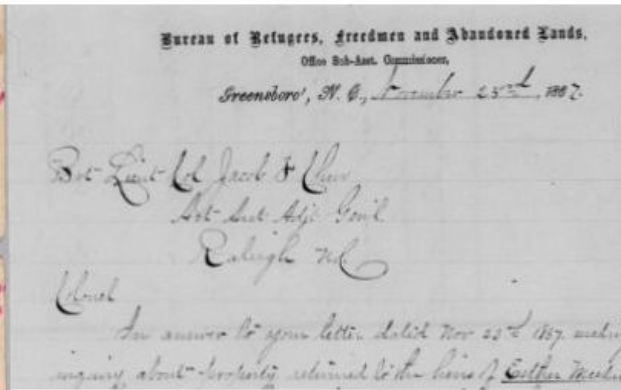 Bureau of Refugees, Freedmen and Abandoned Lands,
Office Sub-Asst. Commissioner,
Greensboro', N. C., November 23rd, 1867.
Bvt Lieut Col Jacob F Chur
Act Asst Adjt Gen'l
Raleigh NC
Colonel
In answer to your letter dated Nov 22nd 1867. making
inquiry about property returned to the heirs of Esther